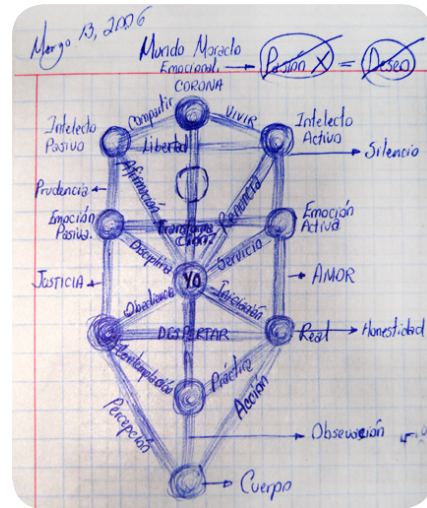 13, 2006
Mundo Morado
Emocional. → Pasión X = Deseo
CORONA
Compartir
VIVIR
Intelecto
Pasivo
Intelecto
Activo
Libertad
Silencio
Afirmación
Renuncia
Prudencia
Emoción
Pasiva.
Transforma
ción.
Emoción
Activa
Disciplina
Servicio
YO
JUSTICIA
AMOR
Obediencia
DESPERTAR
Real
Honestidad
Contemplación
Práctica
Percepción
Acción
Observación
Cuerpo